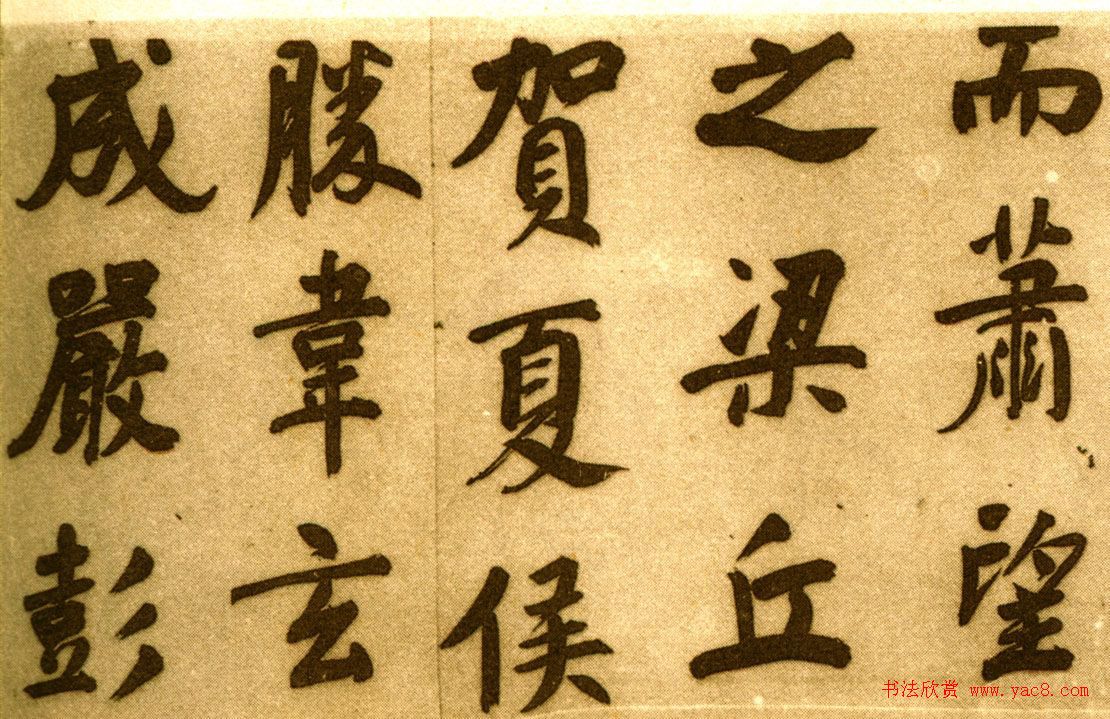 而蕭望
之梁丘
賀夏侯
勝韋玄
成嚴彭
书法欣赏 www.yac8.com